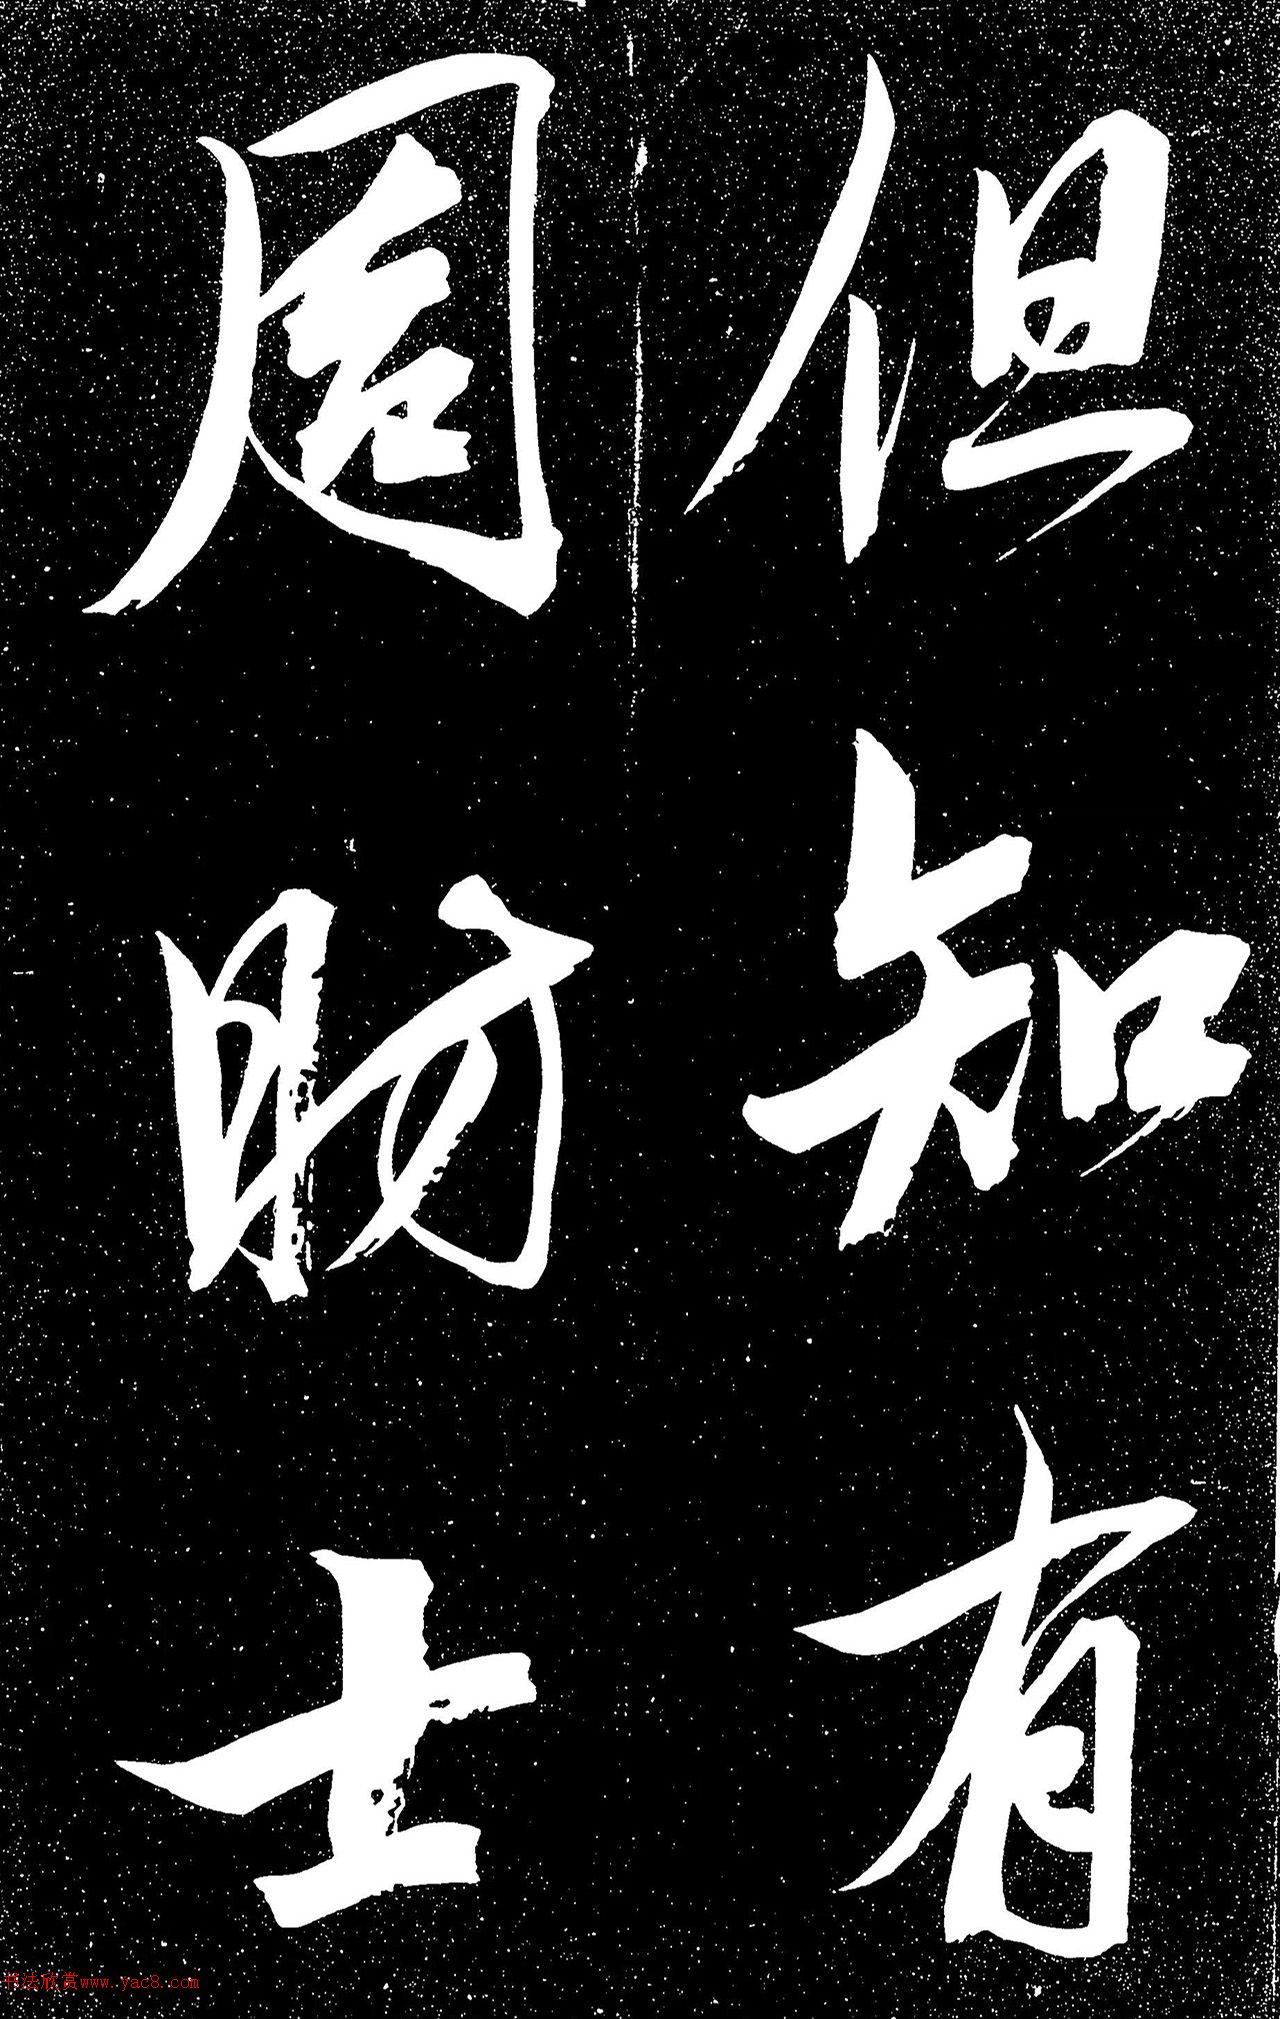 但知有
周昉士
书法欣赏www.yac8.com